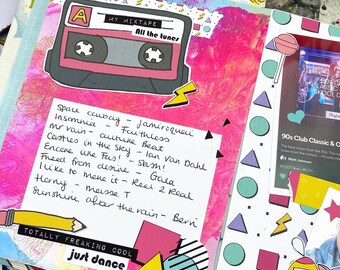 A
MY MIXTAPE
All the tunes
Space cowboy - Jamiroquai
Insomnia - Faithless
Mr vain - Culture Beat
Castles in the Sky - Ian Van Dahl
Encore Une Fois! - Sash!
Freed from desire - Gala
I like to move it - Reel 2 Real
Horny - Mousse T
Sunshine after the rain - Berri
TOTALLY FREAKING COOL
just dance
90s Club Classic & C